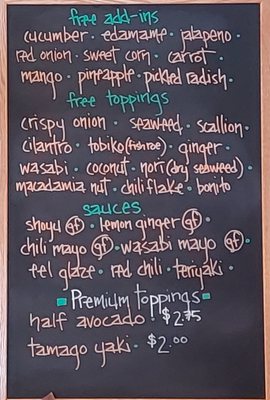 free add-ins
cucumber · edamame · jalapeno ·
red onion · sweet corn · carrot ·
mango · pineapple · pickled radish ·
free toppings
crispy onion · seaweed · scallion ·
cilantro · tobiko (fish roe) · ginger ·
wasabi · coconut · nori (dry seaweed) ·
macadamia nut · chili flake · bonito
sauces
shoyu (gf) · lemon ginger (gf) ·
chili mayo (gf) · wasabi mayo (gf) ·
eel glaze · red chili · teriyaki ·
Premium toppings
half avocado $2.75
tamago yaki · $2.00